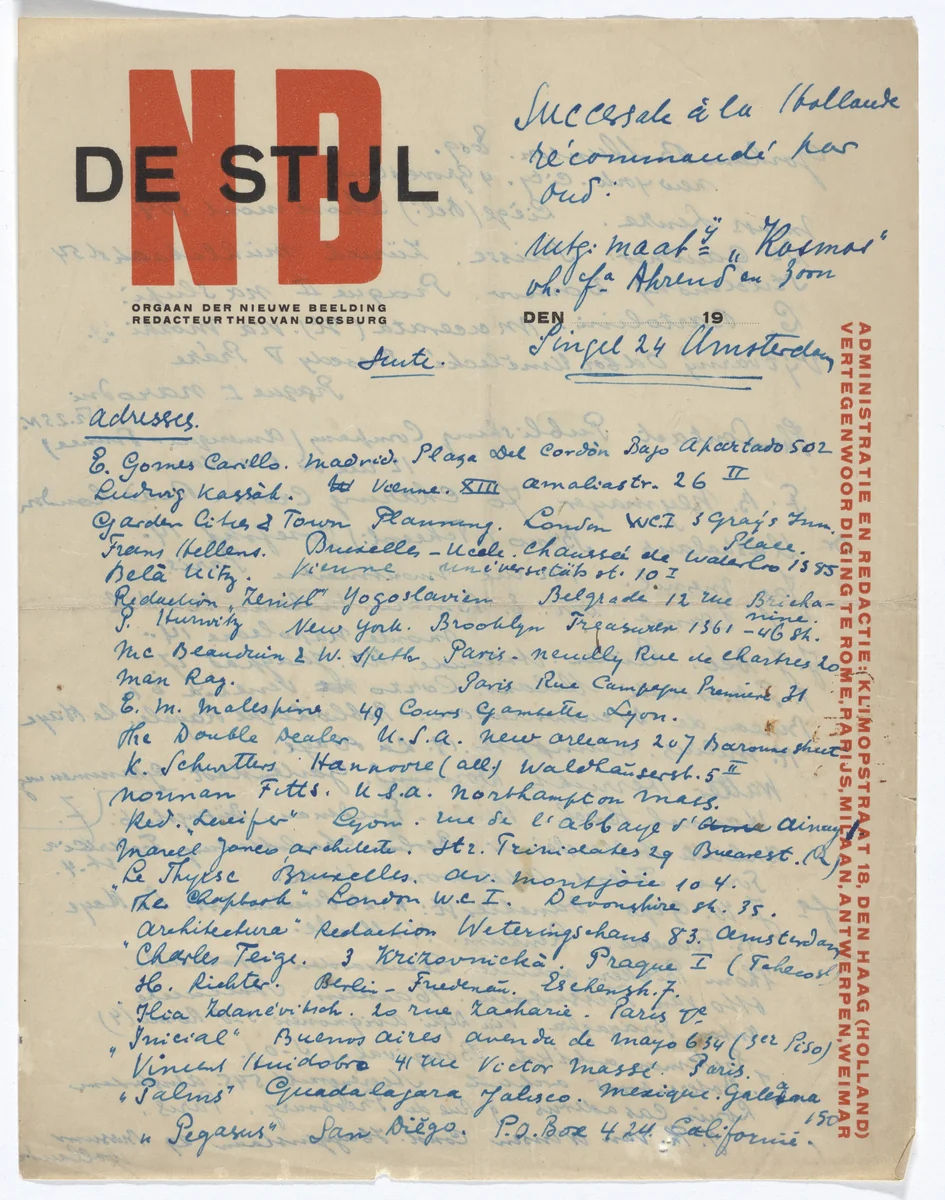 NB
DE STIJL
ORGAAN DER NIEUWE BEELDING
REDACTEUR THEO VAN DOESBURG
Succersale à la Hollande
récommandé par
Oud:
Uitg: maatÿ "Kosmos"
vh. fa Ahrend en Zoon
DEN 19
Singel 24 Amsterdam
Suite.
adresses.
E. Gomes Carillo. Madrid. Plaza Del Cordòn Bajo Apartado 502
Ludwig Kassàk. Vienne. XIII amaliastr. 26 II
Garden Cities & Town Planning. London W.C.I 3 Gray's Inn.
Place.
Frans Hellens. Bruxelles - Uccle. Chaussée de Waterloo 1385
Belà Uitz. Vienne universitäts st. 10 I
Redaction "Zenith" Yogoslavien Belgrade 12 rue Bricha-
nine.
P. Hurwitz New York. Brooklyn 1361 - 46 st.
Mc Beauduin & W. Speth Paris - neuilly Rue de Chartres 20
Man Ray. Paris Rue Campagne Première 31
E. M. Malespine 49 Cours Gambetta Lyon.
The Double Dealer U.S.A. New Orleans 207 Baronne street
K. Schwitters Hannovre (all) Waldhäuserst. 5 II
Norman Fitts. U.S.A. Northampton Mass.
Red. "Lucifer" Lyon. rue de l'abbaye d' Ainay
Marcel Janco, architecte. Str. Trinidates 29 Bucarest.
Le Thyrse Bruxelles. av. montjoie 104.
"The Chapbook" London W.C I. Devonshire st. 35.
"Architectura" Redaction Weteringschans 83. Amsterdam
Charles Teige. 3 Krizovnickà. Prague I (Tchecosl
H. Richter. Berlin - Friedenau. Eschenstr. 7.
Ilia Zdanévitsch. 20 rue Zacharie. Paris Ve
"Inicial" Buenos aires avenda de mayo 634 (3er Piso)
Vincent Huidobro 41 rue Victor Massé. Paris.
"Palms" Guadalajara Jalisco. Mexique. Galeana
150
"Pegasus" San Diégo. P.O. Box 424. Californie.
ADMINISTRATIE EN REDACTIE: KLIMOPSTRAAT 18, DEN HAAG (HOLLAND)
VERTEGENWOORDIGING TE ROME, PARIJS, MILAAN, ANTWERPEN, WEIMAR